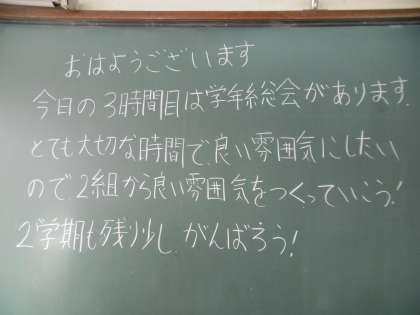 おはようございます
今日の3時間目は学年総会があります。
とても大切な時間で、良い雰囲気にしたい
ので、2組から良い雰囲気をつくっていこう!
2学期も残り少し、がんばろう!